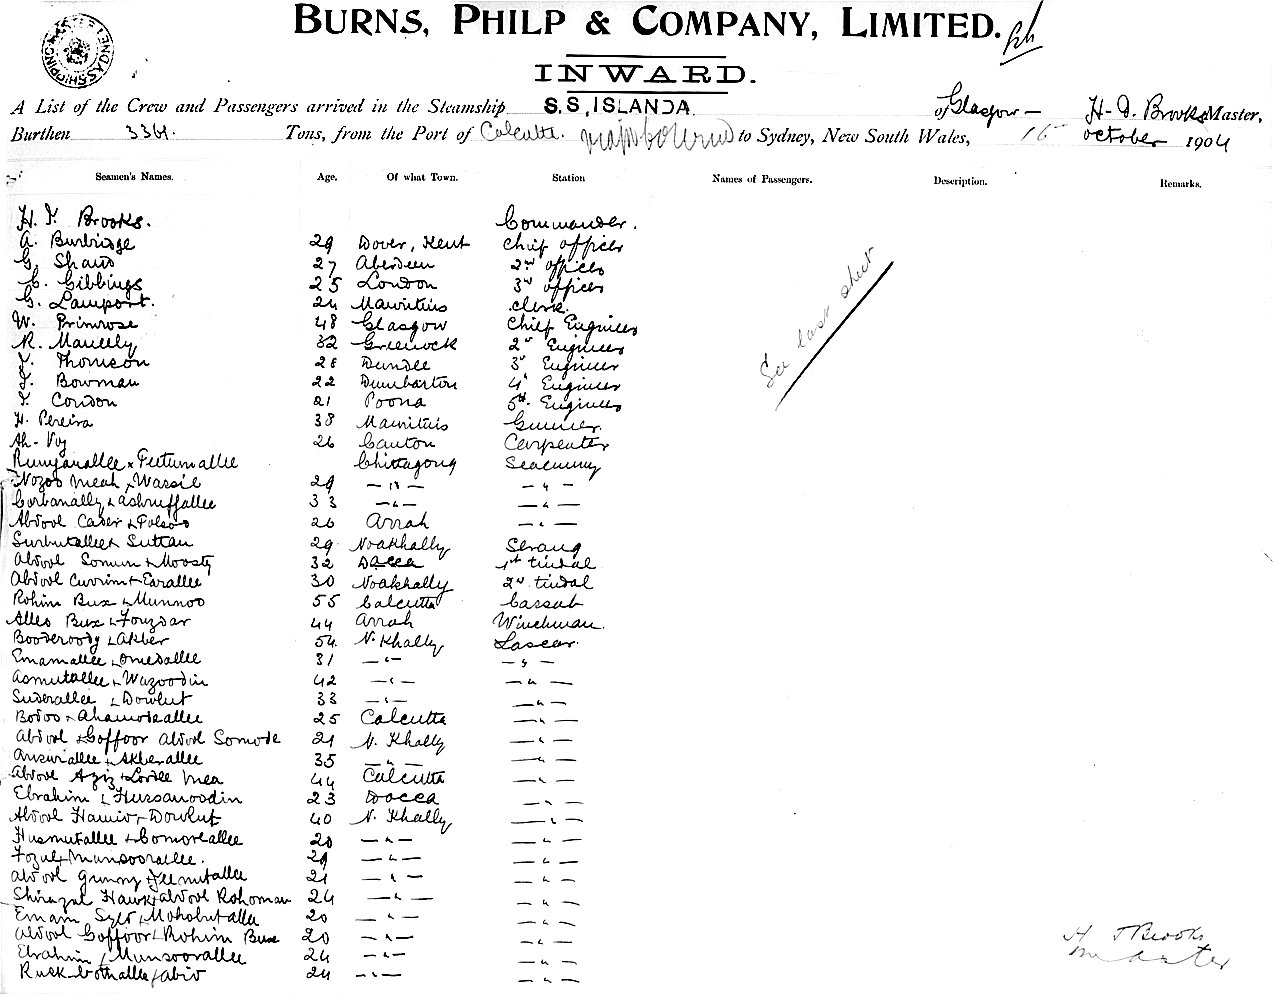 BURNS, PHILP & COMPANY, LIMITED.
INWARD.
A List of the Crew and Passengers arrived in the Steamship S.S. ISLANDA of Glasgow - H. D. Brooks Master,
Burthen 3361. Tons, from the Port of Calcutta. to Sydney, New South Wales, 15 October 1904
Seamen's Names. Age. Of what Town. Station Names of Passengers. Description. Remarks.
Brooks. Commander.
A. Burbidge 29 Dover, Kent Chief officer
G. Shaw 27 Aberdeen 2nd officer
C. Gibbings 25 London 3rd officer
G. Lamport. 24 Mauritius Clerk.
W. Primrose 48 Glasgow Chief Engineer
R. 32 Greenock 2nd Engineer
Thomson Dundee 3rd Engineer
Bowman 22 Dumbarton 4th Engineer
Condon 21 Poona 5th Engineer
H. Pereira 38 Mauritius Gunner.
26 Canton Carpenter
Chittagong Seacunny
Nozoo Meah & Wassil 29 - " - - " -
Corbanally & Ashruffallee 33 - " - - " -
Abdool Cader & 26 Arrah - " -
29 Noakhally Serang
Abdool Somun & 32 Dacca 1st tindal
Abdool Currim & Earallee 30 Noakhally 2nd tindal
Rohim Bux & Munnoo 55 Calcutta Cassab
Alleo Bux & Fouzdar 44 Arrah Winchman.
Booderoody & Akber 54. N. Khally Lascar.
Emamallee & Omedallee 31 - " - - " -
Asmutallee & Wazoodin 42 - " - - " -
Suderallee & Dowlut 33 - " - - " -
Bodoo & 25 Calcutta - " -
Abdool Goffoor Abdool 21 N. Khally - " -
Answerallee & Akberallee 35 - " - - " -
Abdool Aziz & Mea 44 Calcutta - " -
Ebrahim & Hussanoodin 23 Dacca - " -
Abdool Hamid & Dowlut 40 N. Khally - " -
Husmutallee & 20 - " - - " -
Fozul & Munsoorallee. 29 - " - - " -
Abdool Gunny & 21 - " - - " -
Abdool Rohoman 24 - " - - " -
Emam & Mohobutalla 20 - " - - " -
Abdool Goffoor & Rohim Bux 20 - " - - " -
Ebrahim & Munsoorallee 24 - " - - " -
24 - " - - " -
See last sheet
H Brooks
Master